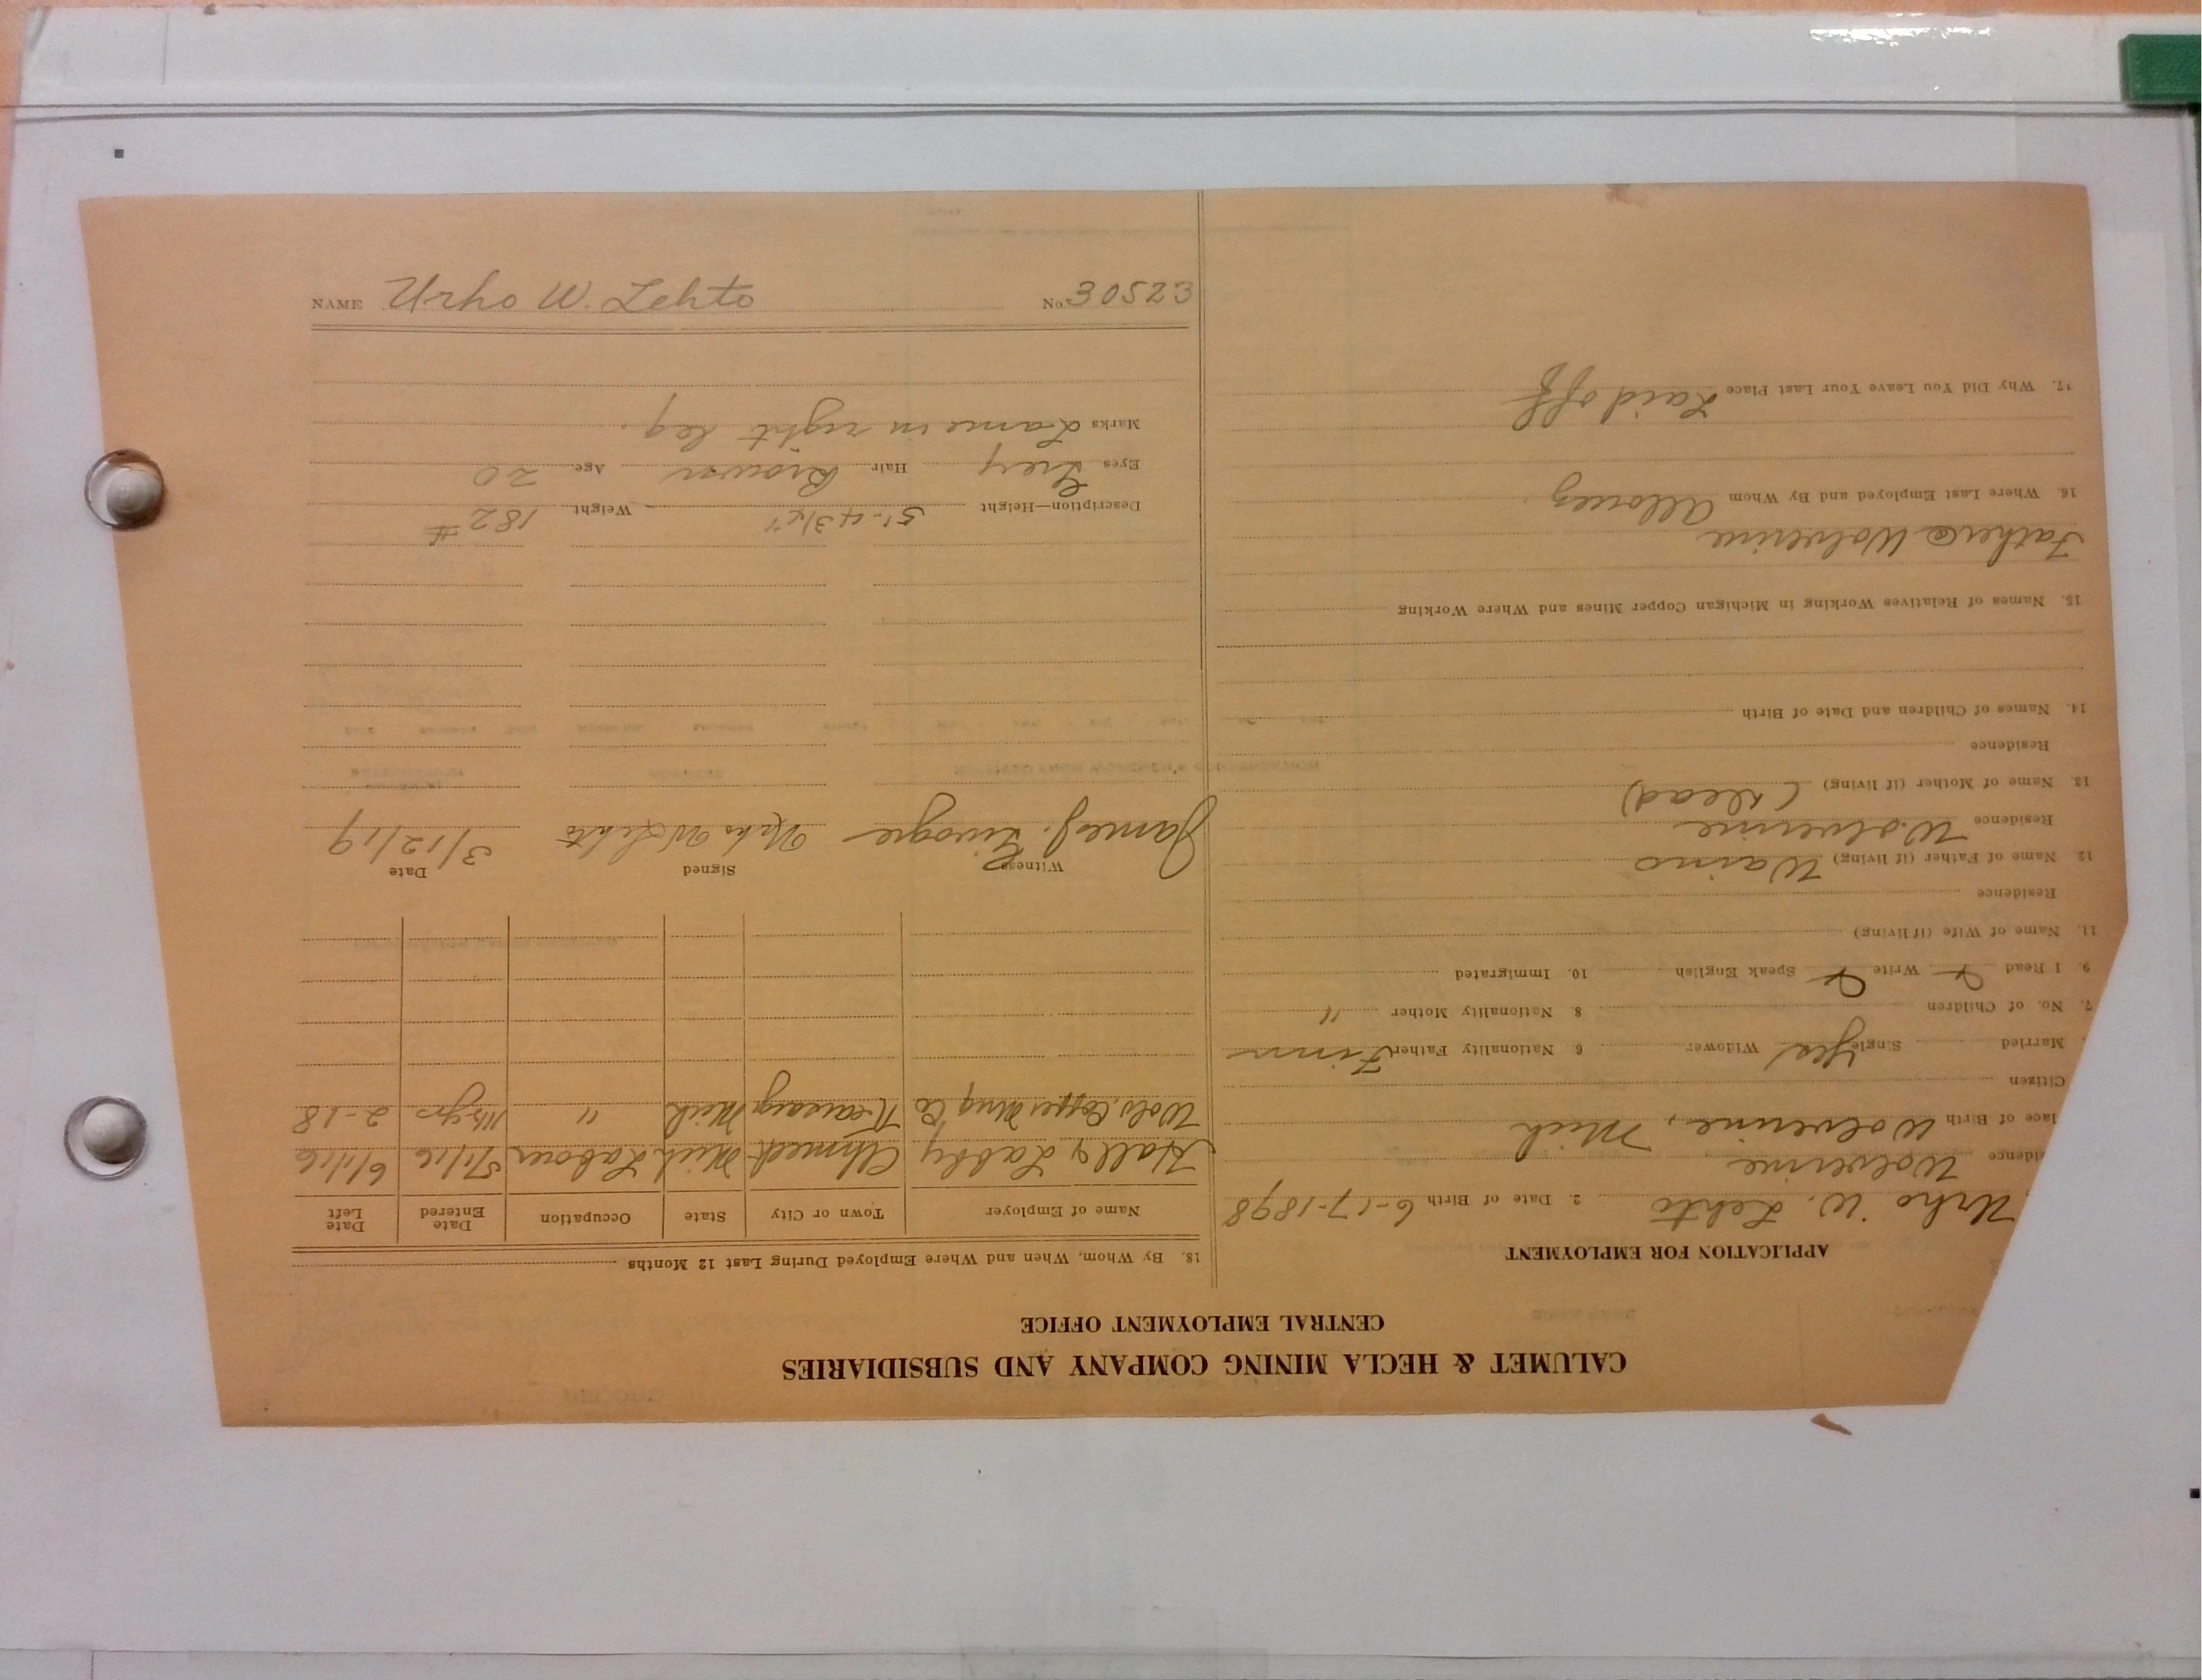 CALUMET & HECLA MINING COMPANY AND SUBSIDIARIES
CENTRAL EMPLOYMENT OFFICE
APPLICATION FOR EMPLOYMENT
Urho W. Lehto 2. Date of Birth 6-17-1898
idence Wolverine
lace of Birth Wolverine, Mich
Citizen
Married Single Yes Widower 6 Nationality Father Finn
7. No. of Children 8. Nationality Mother "
9. I Read Write Speak English 10. Immigrated
11. Name of Wife (if living)
Residence
12. Name of Father (if living) Waino
Residence Wolverine
13. Name of Mother (if living) (Dead)
Residence
14. Names of Children and Date of Birth
15. Names of Relatives Working in Michigan Copper Mines and Where Working
Father @ Wolverine
16. Where Last Employed and By Whom Allouez
17. Why Did You Leave Your Last Place Laid off
18. By Whom, When and Where Employed During Last 12 Months
Name of Employer Town or City State Occupation Date Entered Date Left
Ahmeek Mich Laborer 5/1/16 6/1/16
Wolv. Copper Mng Co Kearsarge Mich " 1 1/2 yrs 2-18
Witness Signed Date
James J. Urho W Lehto 3/12/19
Description—Height 5'-4 3/4" Weight 182 #
Eyes Grey Hair Brown Age 20
Marks Lame in right leg.
NAME Urho W. Lehto No. 30523